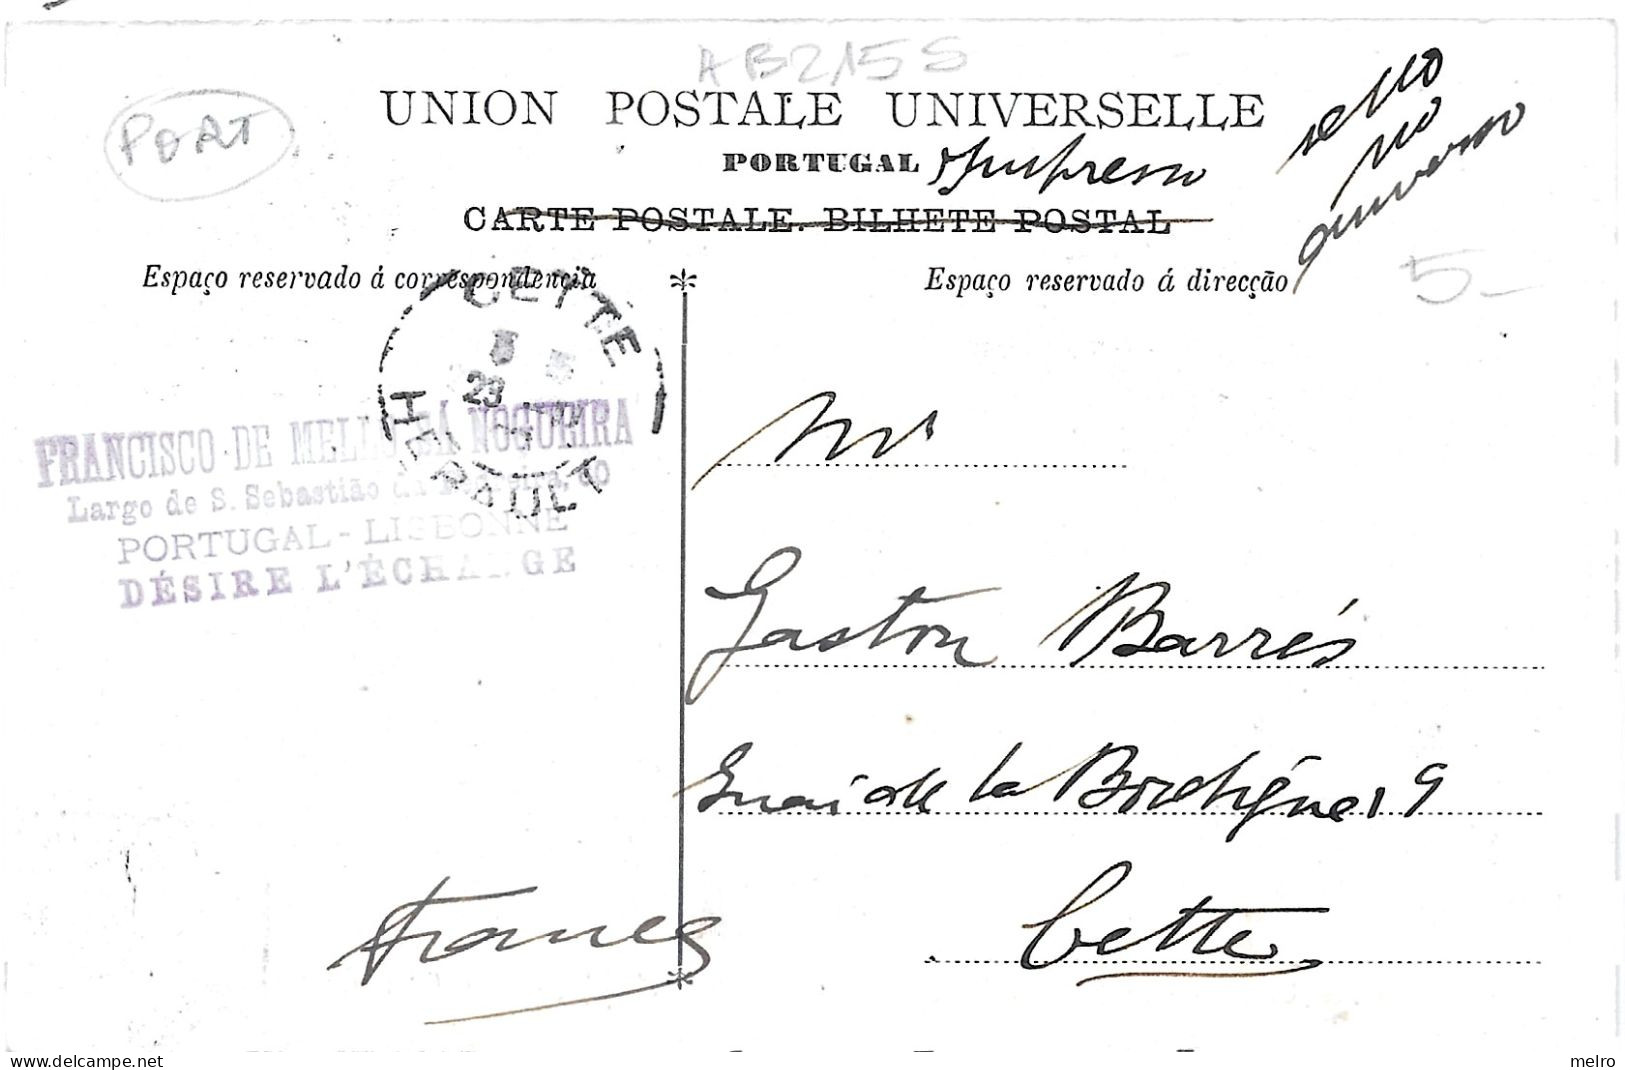 AB2155
PORT
UNION POSTALE UNIVERSELLE
PORTUGAL Impresso
sello no inverso
CARTE POSTALE. BILHETE POSTAL
Espaço reservado á correspondencia
Espaço reservado á direcção
5-
CETTE
HERAULT
FRANCISCO DE MELLO SÁ NOGUEIRA
Largo de S. Sebastião da Pedreira,
PORTUGAL - LISBONNE
DÉSIRE L'ÉCHANGE
Mr
Gaston Barrés
Quai de la Bordigue 19
Cette
France
delcampe.net
melro